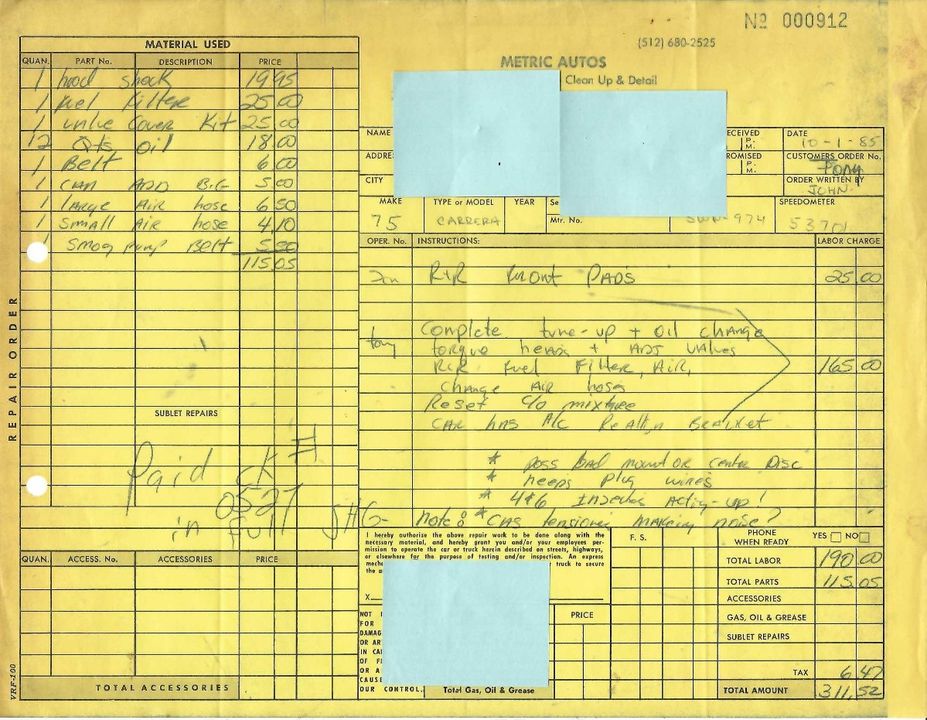 Nº 000912
(512) 680-2525
METRIC AUTOS
Clean Up & Detail
MATERIAL USED
QUAN. PART No. DESCRIPTION PRICE
1 hood shock 19 95
1 fuel filter 25 00
1 valve cover kit 25 00
12 Qts oil 18 00
1 Belt 6 00
1 CAN ADD B.G 5 00
1 large Air hose 6 50
1 Small Air hose 4 10
1 Smog pump Belt 5 50
115 05
NAME
ECEIVED P. M.
DATE 10-1-85
ADDRE
OMISED P. M.
CUSTOMERS ORDER No.
CITY
ORDER WRITTEN BY JOHN
MAKE TYPE or MODEL YEAR Se SPEEDOMETER
75 CARRERA Mtr. No. 974 53701
OPER. No. INSTRUCTIONS: LABOR CHARGE
R+R front PADS 25 00
Complete tune-up + oil change
tony torque heads + ADJ VALVES
R+R fuel Filter, Air, 165 00
Change AIR hoses
Reset C/O mixture
CAR has A/C Realign Bracket
* poss bad mount or center Disc
* needs plug wires
* 4+6 Injectors Acting-up!
Note: * tensioner making noise?
REPAIR ORDER
SUBLET REPAIRS
Paid ck #
0527
in Full
QUAN. ACCESS. No. ACCESSORIES PRICE
TOTAL ACCESSORIES
VRF-100
I hereby authorize the above repair work to be done along with the
necessary material, and hereby grant you and/or your employees per-
mission to operate the car or truck herein described on streets, highways,
or elsewhere for the purpose of testing and/or inspection. An express
mech truck to secure
the a
X
NOT
FOR
DAMAG
OR AR
IN CA
OF F
OR A
CAUSE
OUR CONTROL.
F. S.
PRICE
Total Gas, Oil & Grease
PHONE WHEN READY YES NO
TOTAL LABOR 190 00
TOTAL PARTS 115 05
ACCESSORIES
GAS, OIL & GREASE
SUBLET REPAIRS
TAX 6 47
TOTAL AMOUNT 311 52